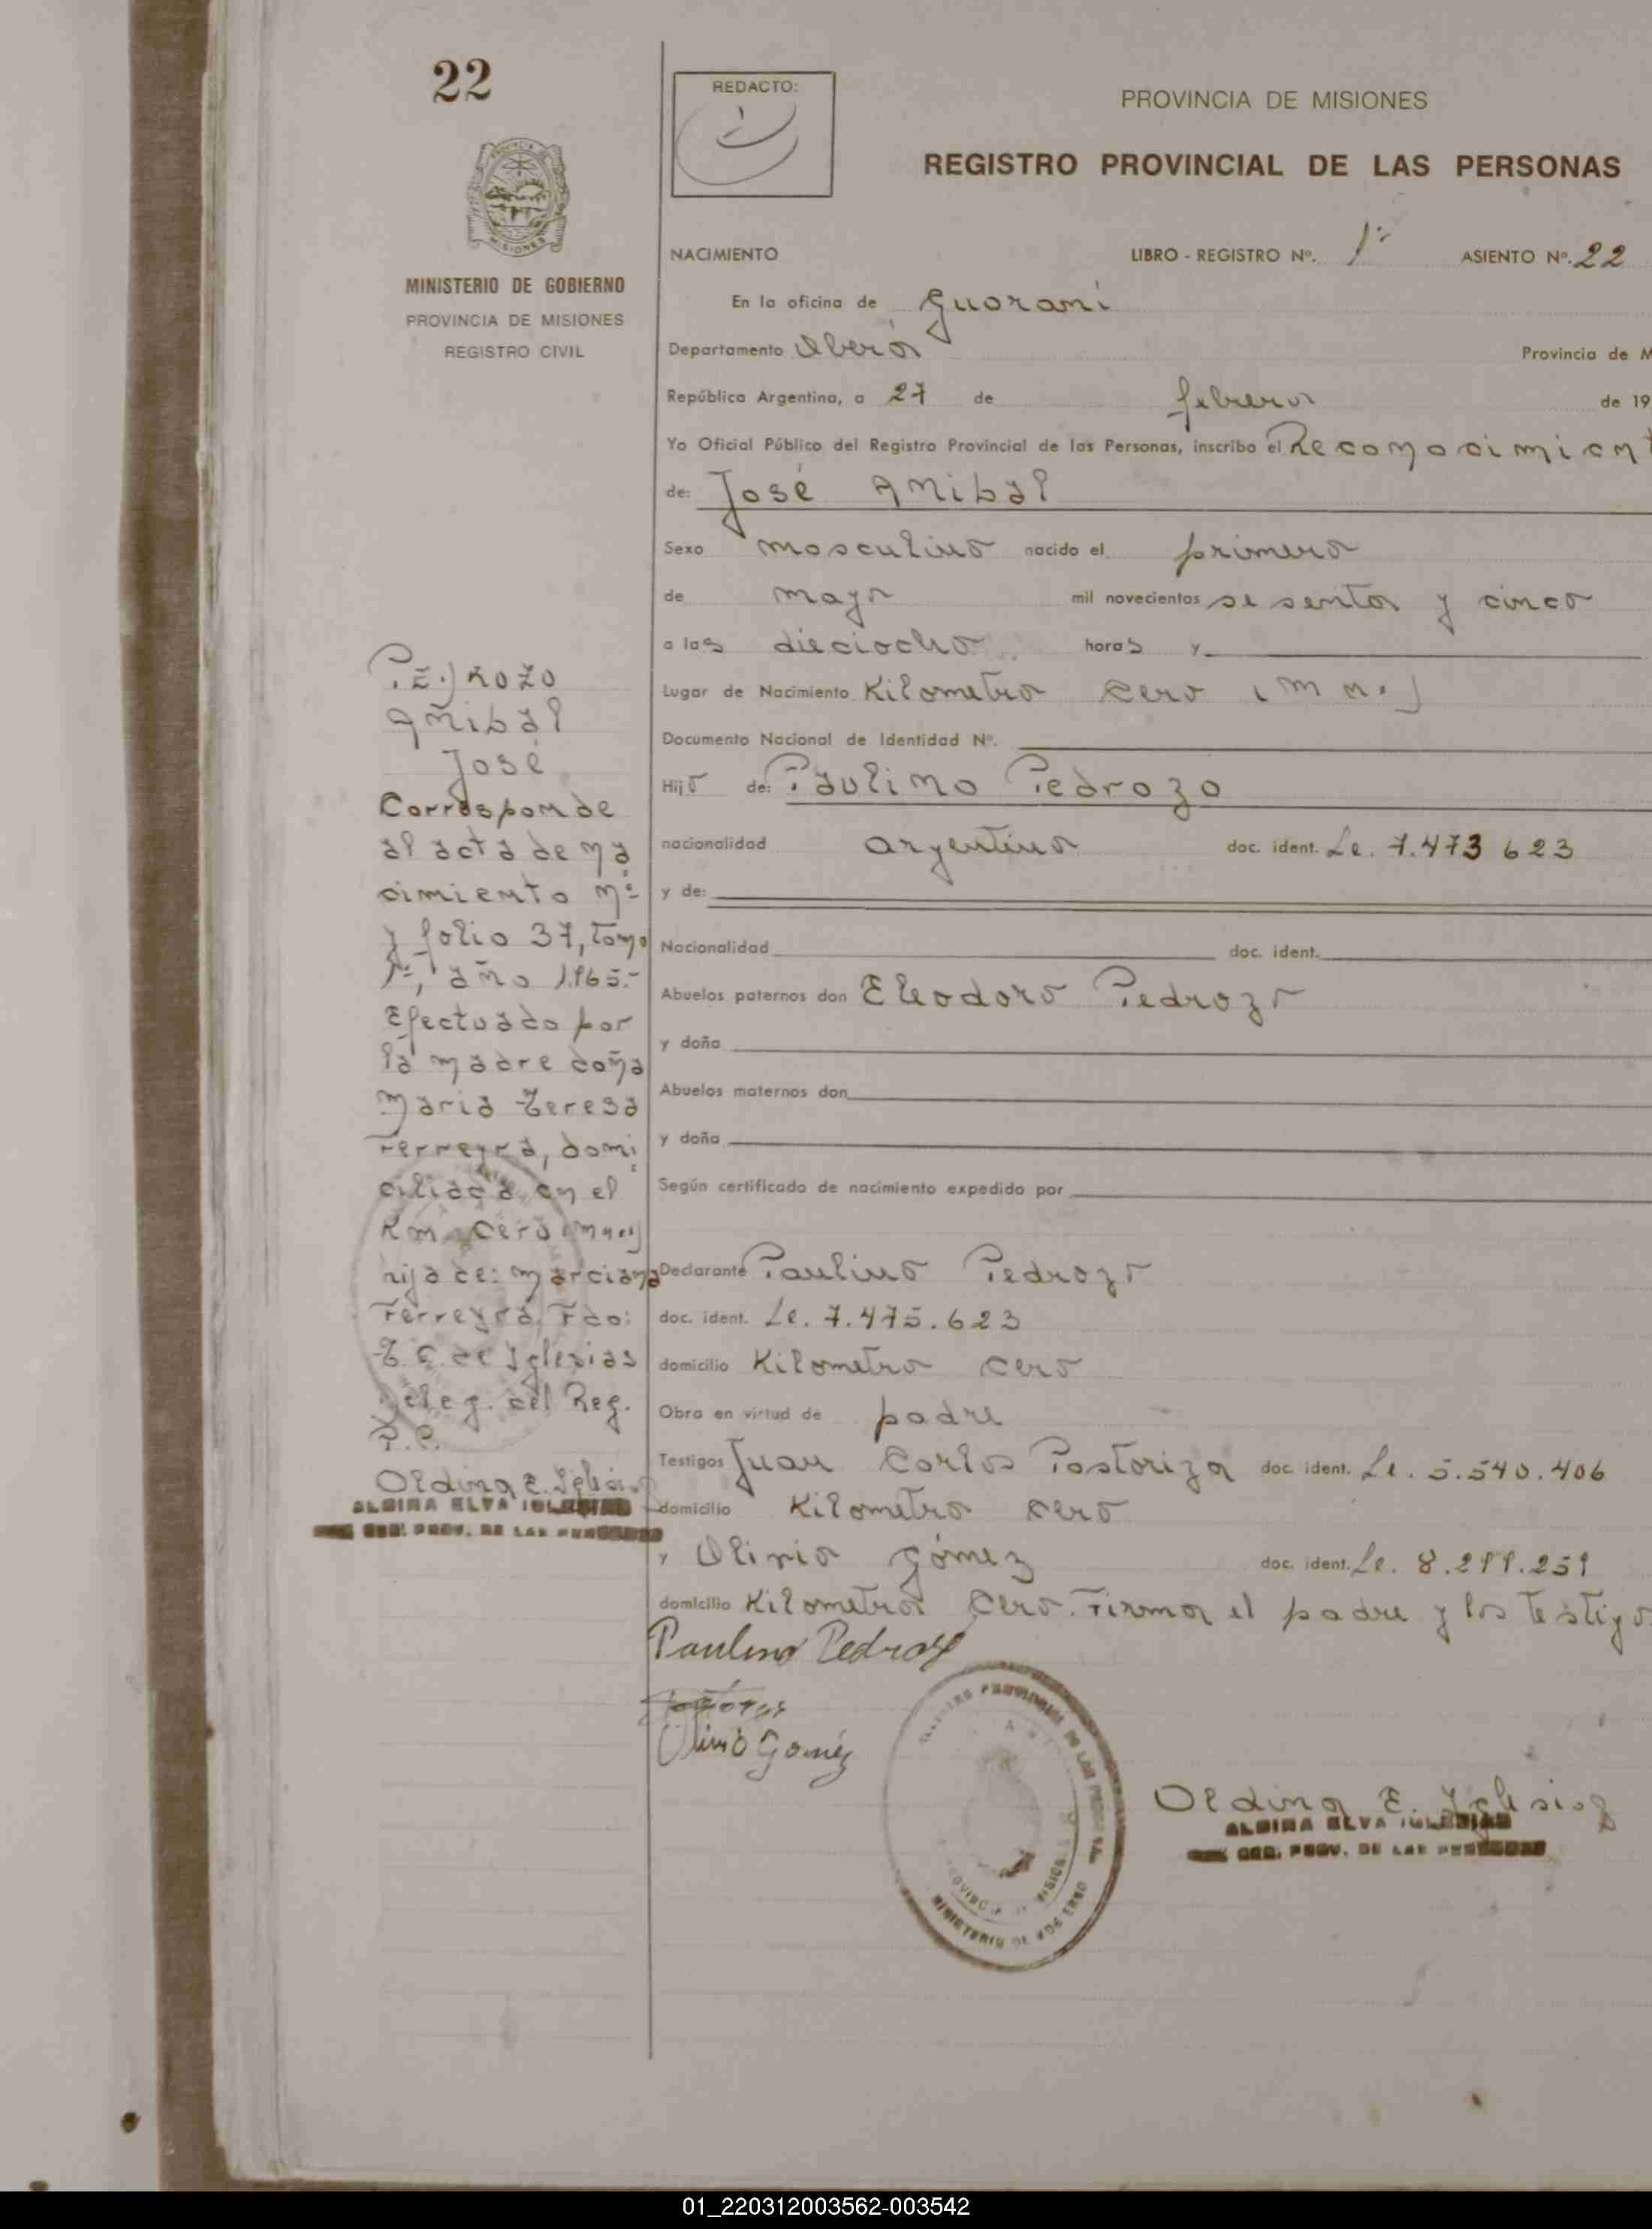 22
REDACTO:
PROVINCIA DE MISIONES
REGISTRO PROVINCIAL DE LAS PERSONAS
MINISTERIO DE GOBIERNO
PROVINCIA DE MISIONES
REGISTRO CIVIL
NACIMIENTO LIBRO - REGISTRO Nº. 1º ASIENTO Nº. 22
En la oficina de Guarani
Departamento Oberá Provincia de M
República Argentina, a 27 de febrero de 19
Yo Oficial Público del Registro Provincial de las Personas, inscribo el Reconocimient
de: José Anibal
Sexo masculino nacido el primero
de mayo mil novecientos sesenta y cinco
a las dieciocho horas y
Lugar de Nacimiento Kilometro cero (Mnes.)
Documento Nacional de Identidad Nº.
Hijo de: Paulino Pedrozo
nacionalidad argentino doc. ident. Le. 7.473 623
y de:
Nacionalidad doc. ident.
Abuelos paternos don Eleodoro Pedrozo
y doña
Abuelos maternos don
y doña
Según certificado de nacimiento expedido por
Declarante Paulino Pedrozo
doc. ident. Le. 7.475.623
domicilio Kilometro cero
Obra en virtud de padre
Testigos Juan Carlos Pastoriza doc. ident. Le. 5.540.406
domicilio Kilometro cero
y Olirio Gómez doc. ident. Le. 8.299.259
domicilio Kilometro cero. Firman el padre y los testigos
Paulino Pedrozo
Gómez
ozo
Anibal
José
Corresponde
al acta de na
cimiento nº
y folio 37, tomo
1º, año 1965.-
Efectuado por
la madre doña
Maria Teresa
Ferreyra, domi
ciliada en el
Km. cero (Mnes)
hija de: Marciana
Ferreyra. Fdo:
E. de Iglesias
Deleg. del Reg.
P.P.
E. Iglesias
ALBINA ELVA IGLESIAS
REG. PROV. DE LAS PERSONAS
REGISTRO PROVINCIAL DE LAS PERSONAS
MINISTERIO DE GOBIERNO
PROVINCIA DE MISIONES
E. Iglesias
ALBINA ELVA IGLESIAS
REG. PROV. DE LAS PERSONAS
01_220312003562-003542